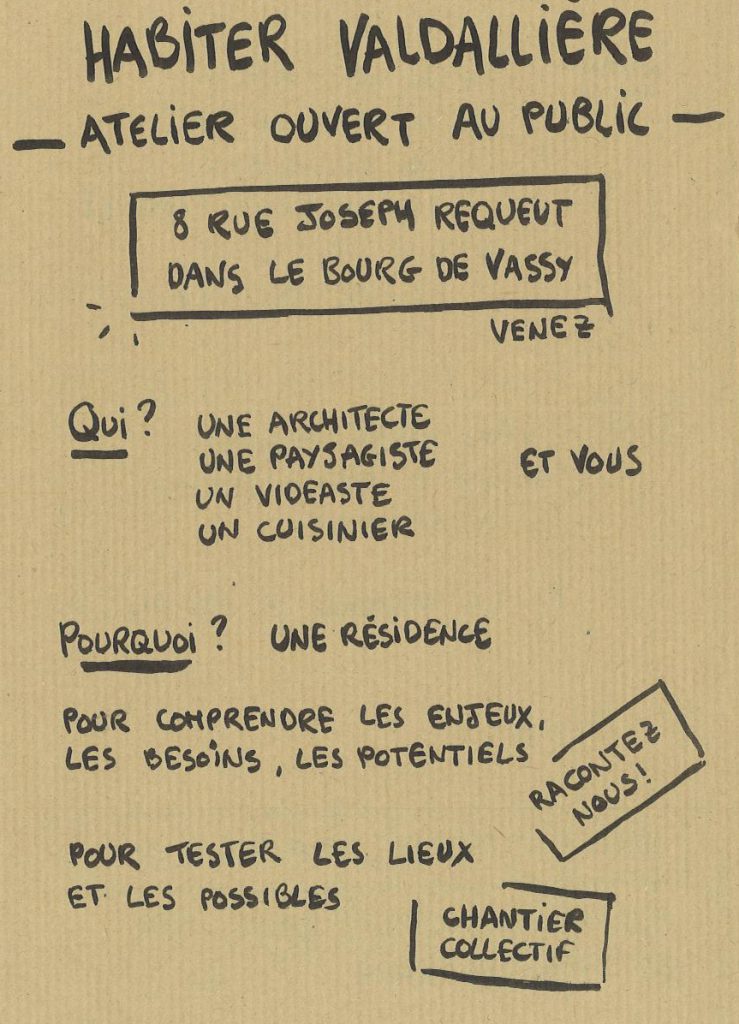 HABITER VALDALLIÈRE
— ATELIER OUVERT AU PUBLIC —
8 RUE JOSEPH REQUEUT
DANS LE BOURG DE VASSY
VENEZ
QUI ? UNE ARCHITECTE
UNE PAYSAGISTE ET VOUS
UN VIDEASTE
UN CUISINIER
POURQUOI ? UNE RÉSIDENCE
POUR COMPRENDRE LES ENJEUX,
LES BESOINS, LES POTENTIELS
RACONTEZ
NOUS !
POUR TESTER LES LIEUX
ET LES POSSIBLES
CHANTIER
COLLECTIF